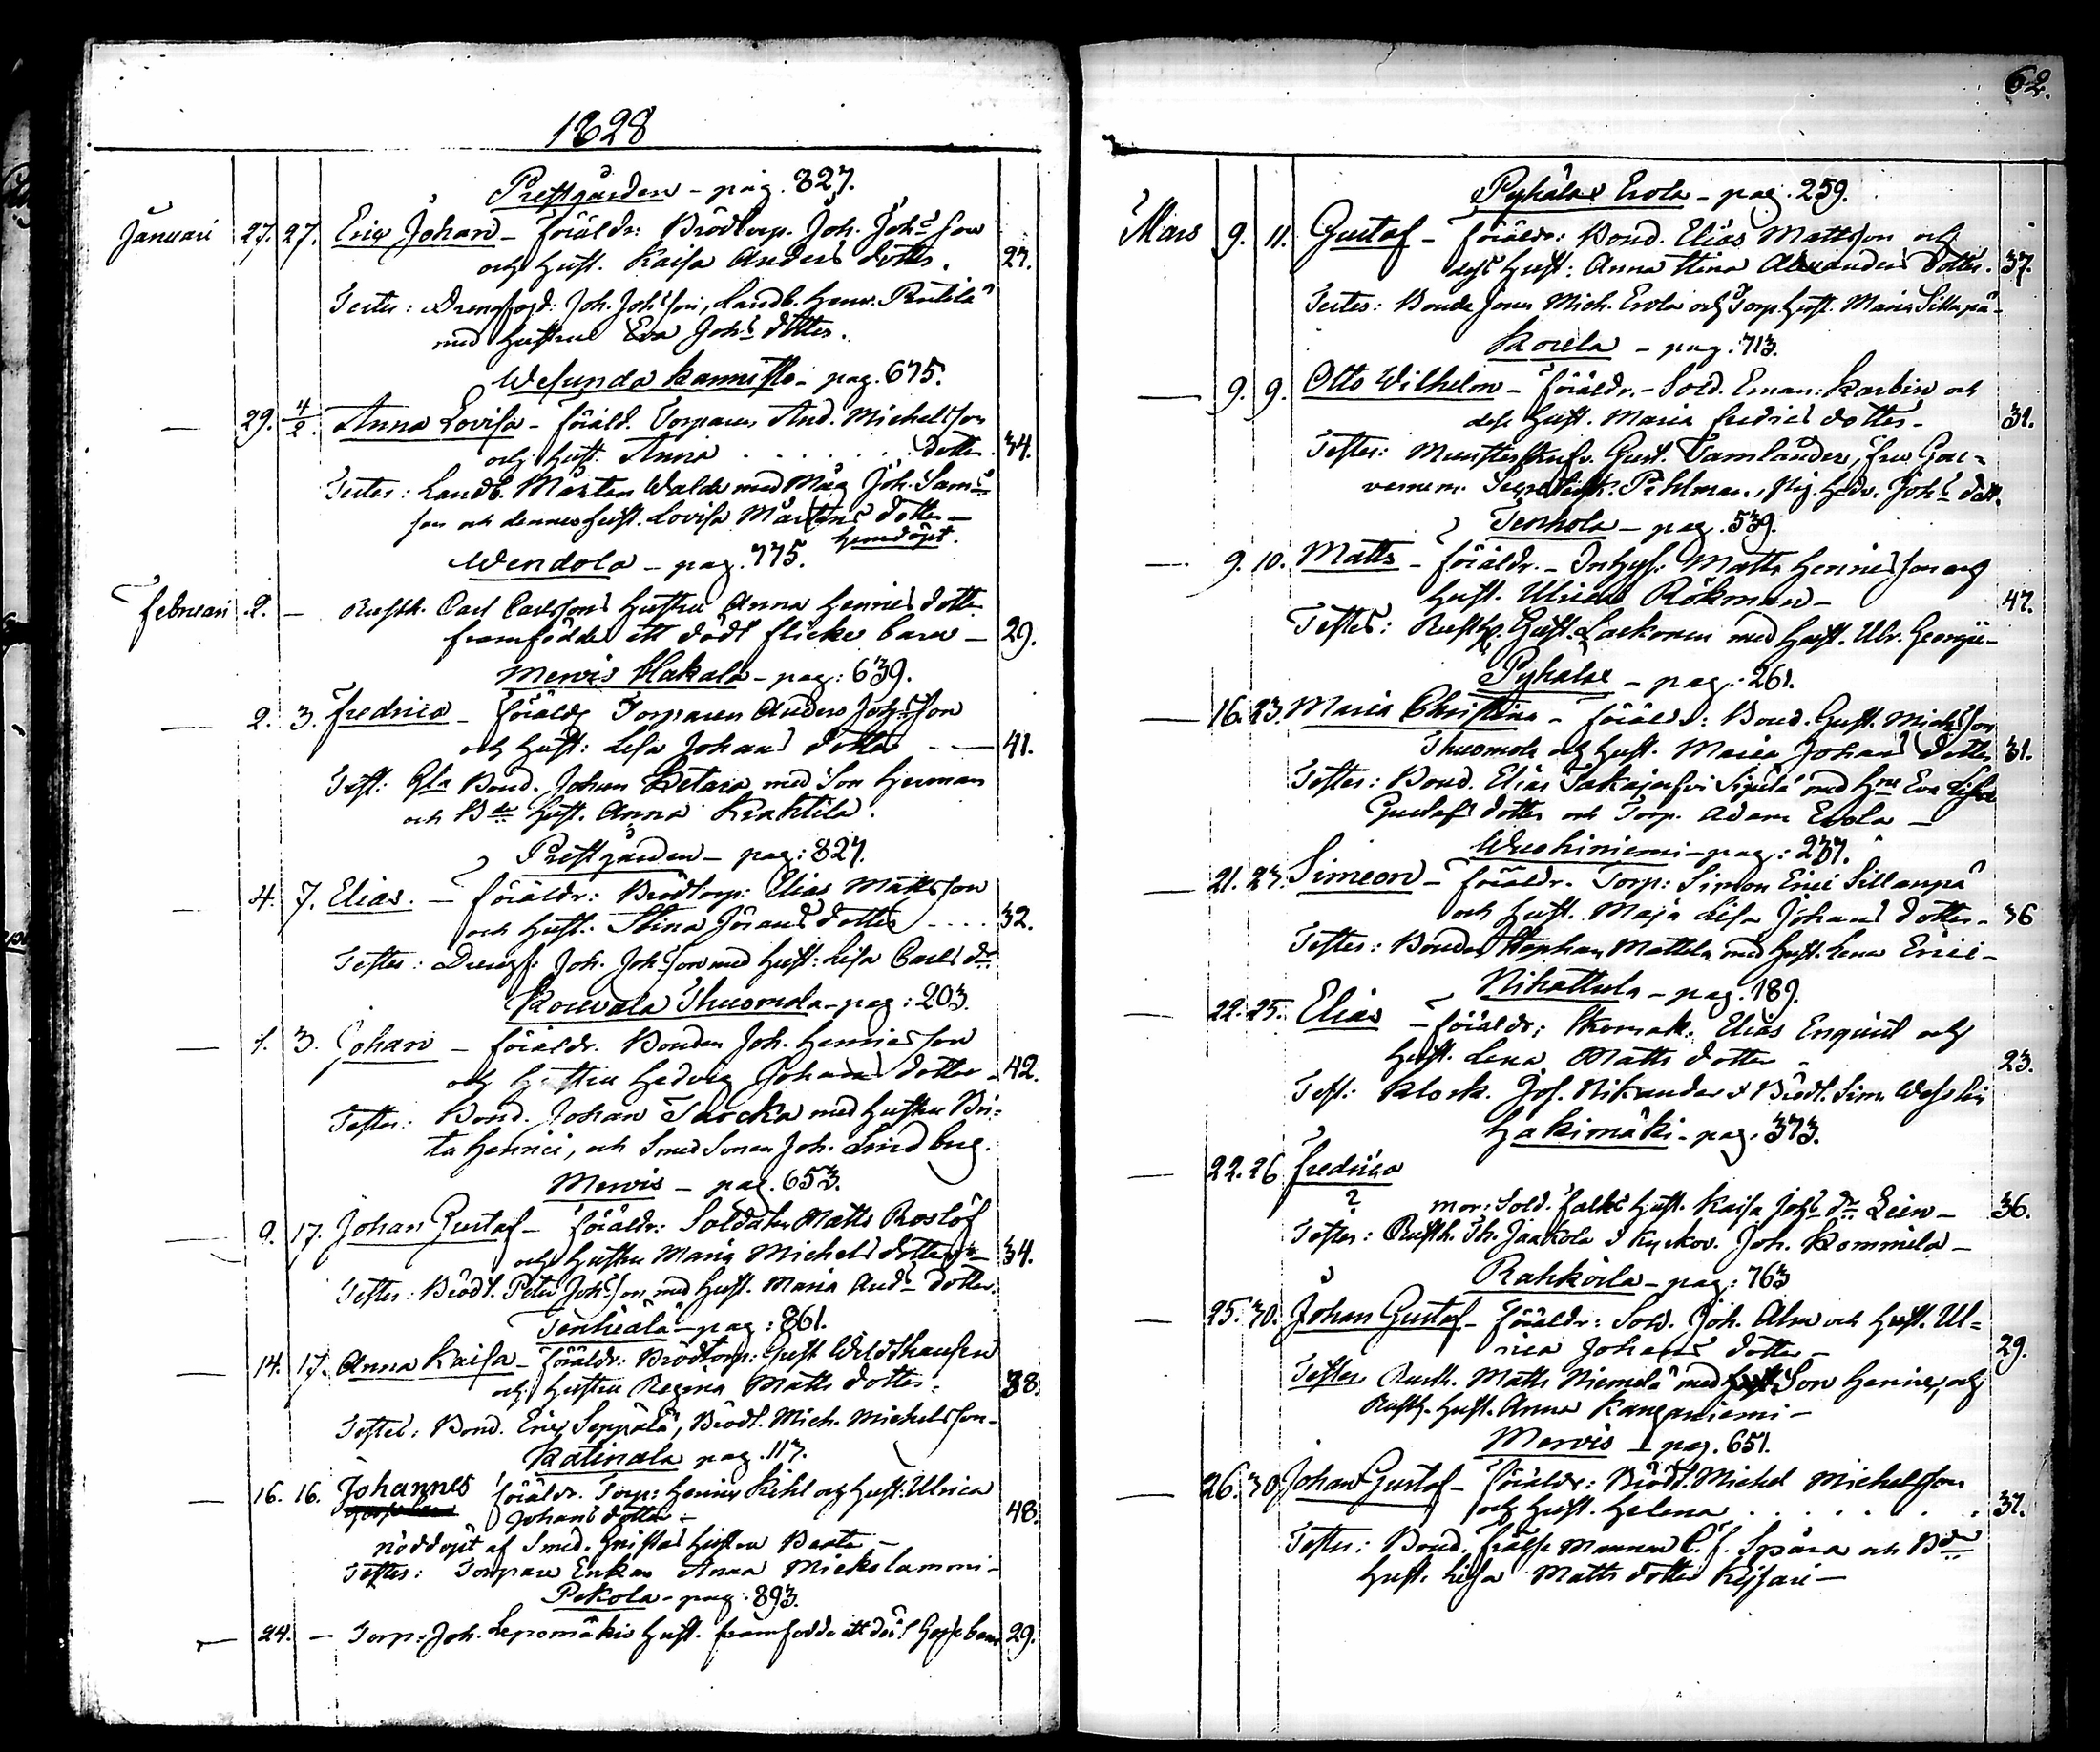 1828
Prestgården - pag. 827.
Januari 27. 27. Eric Johan - föräldr: Brödtorp. Joh. Johsson
och hust. Kaisa Anders dotter. 27.
Testes: Drengfogd: Joh. Johsson, Landb. Henr. Penttilä
med hustru Eva Johs dotter.
Wesunda Kannisto - pag. 675.
— 29. 4/2. Anna Lovisa - föräld. Torparen And. Michelsson
och hust. Anna . . . . . . dotter. 34.
Testes: Landb. Mårten Walda med Måg Joh. Sams
son och dennes hust. Lovisa Mårtens dotter -
hemdöpt.
Wendola - pag. 775.
Februari 2. — Rusth. Carl Carlssons hustru Anna Henrics dotter
framfödde ett dödt flicke barn — 29.
Mervis Hakala - pag: 639.
— 2. 3. Fredrica - föräldr Torparen Anders Johsson
och hust: Lisa Johans dotter - — 41.
Test: Gla Bond. Johan Ketara med Son Herman
och Bde hust. Anna Krahtila.
Prestgården - pag: 827.
— 4. 7. Elias. — föräldr: Brödtorp: Elias Mattsson
och hust: Stina Jörans dotter .... 32.
Testes: Drengf. Joh. Johsson med hust: Lisa Carls dr
Kouvala Thuomola - pag: 203.
— 1. 3. Johan - föräldr. Bonden Joh. Henricsson
och hustru Hedvig Johans dotter - 42.
Testes: Bond. Johan Tarocka med hustru Bri=
ta Henrici, och Smed Sonen Joh. Lindberg.
Mervis - pag. 653.
— 9. 17. Johan Gustaf - föräldr: Soldaten Matts Roslöf
och hustru Maria Michels dotter — 34.
Testes: Brödt. Peter Johsson med hust. Maria Ands dotter.
Tenhiälä - pag: 861.
— 14. 17. Anna Kaisa - föräldr: Brödtorp: Gust Wildthausen
och hustru Regina Matts dotter. 38.
Testes: Bond. Eric Seppälä, Brödt. Mich. Michelsson -
Katinala pag. 117.
— 16. 16. Johannes föräldr. Torp: Henric Kihl och hust. Ulrica
Johans dotter - 48.
nöddöpt af Smed. Gnistas hustru Beata -
Testes: Torpare Enkan Anna Mickolammi -
Pekola - pag: 893.
— 24. — Torp: Joh. Lepomäkis hust. framfödde ett död Gosse barn 29.
62.
Pyhälax Erola - pag. 259.
Mars 9. 11. Gustaf - föräldr: Bond. Elias Mattsson och
dess hust: Anna Stina Alexanders dotter. 37.
Testes: Bonde Jonas Mich. Erola och Torp. hust. Maria Sillapä -
Korela - pag. 713.
— 9. 9. Otto Wilhelm - föräldr. - Sold. Eman: Karbin och
dess hust. Maria Fredrics dotter - 31.
Testes: Munsterskrifv. Gust. Tamlander, fru Gou=
vernem. Secretersk. Pihlman, pig. Hedv. Johs dott.
Tenhola - pag. 539.
— 9. 10. Matts - föräldr. - Inhys: Matts Henricsson och
hust. Ulrica Rökman - 47.
Testes: Rusth. Gust. Laekonen med hust. Ulr. Georgii -
Pyhälax - pag: 261.
— 16. 23. Maria Christina - föräldr: Bond. Gust. Michsson
Thuomola och hust. Maria Johans dotter 31.
Testes: Bond. Elias Takajerfvi Sipilä med hru Eva Lisa
Gustafs dotter och Torp. Adam Erola -
Wuohiniemi - pag: 237.
— 21. 23. Simeon - föräldr. Torp: Simon Erici Sillanpä
och hust. Maja Lisa Johans dotter - 36
Testes: Bonden Stephan Mattila med hust. Lena Erici -
Nihattula - pag. 189.
— 22. 25. Elias - föräldr; Skomak. Elias Enqvist och
hust. Lena Matts dotter - 23.
Test: Klock. Jos. Nikander & Brödt. Sim. Wesslin
Hakimäki - pag. 373.
— 22. 26 Fredrica
? mor: Sold. Falks hust. Kaisa Johs dr Leen - 36.
Testes: Rusth. Th. Jaakola & Kyrkov. Joh. Kommila -
Rahkoila - pag: 763
— 25. 30. Johan Gustaf - föräldr: Sold. Joh. Alm och hust. Ul=
rica Johans dotter - 29.
Testes Rusth. Matts Niemelä med Son Henric, och
Rusth. hust. Anna Kanganiemi -
Mervis - pag. 651.
— 26. 30 Johan Gustaf - föräldr: Brödt. Michel Michelsson
och hust. Helena . . . . . . . 37.
Testes: Bond. Frälse Mannen C. J. Spåra och Bde
hust. Lisa Matts dotter Keisari -